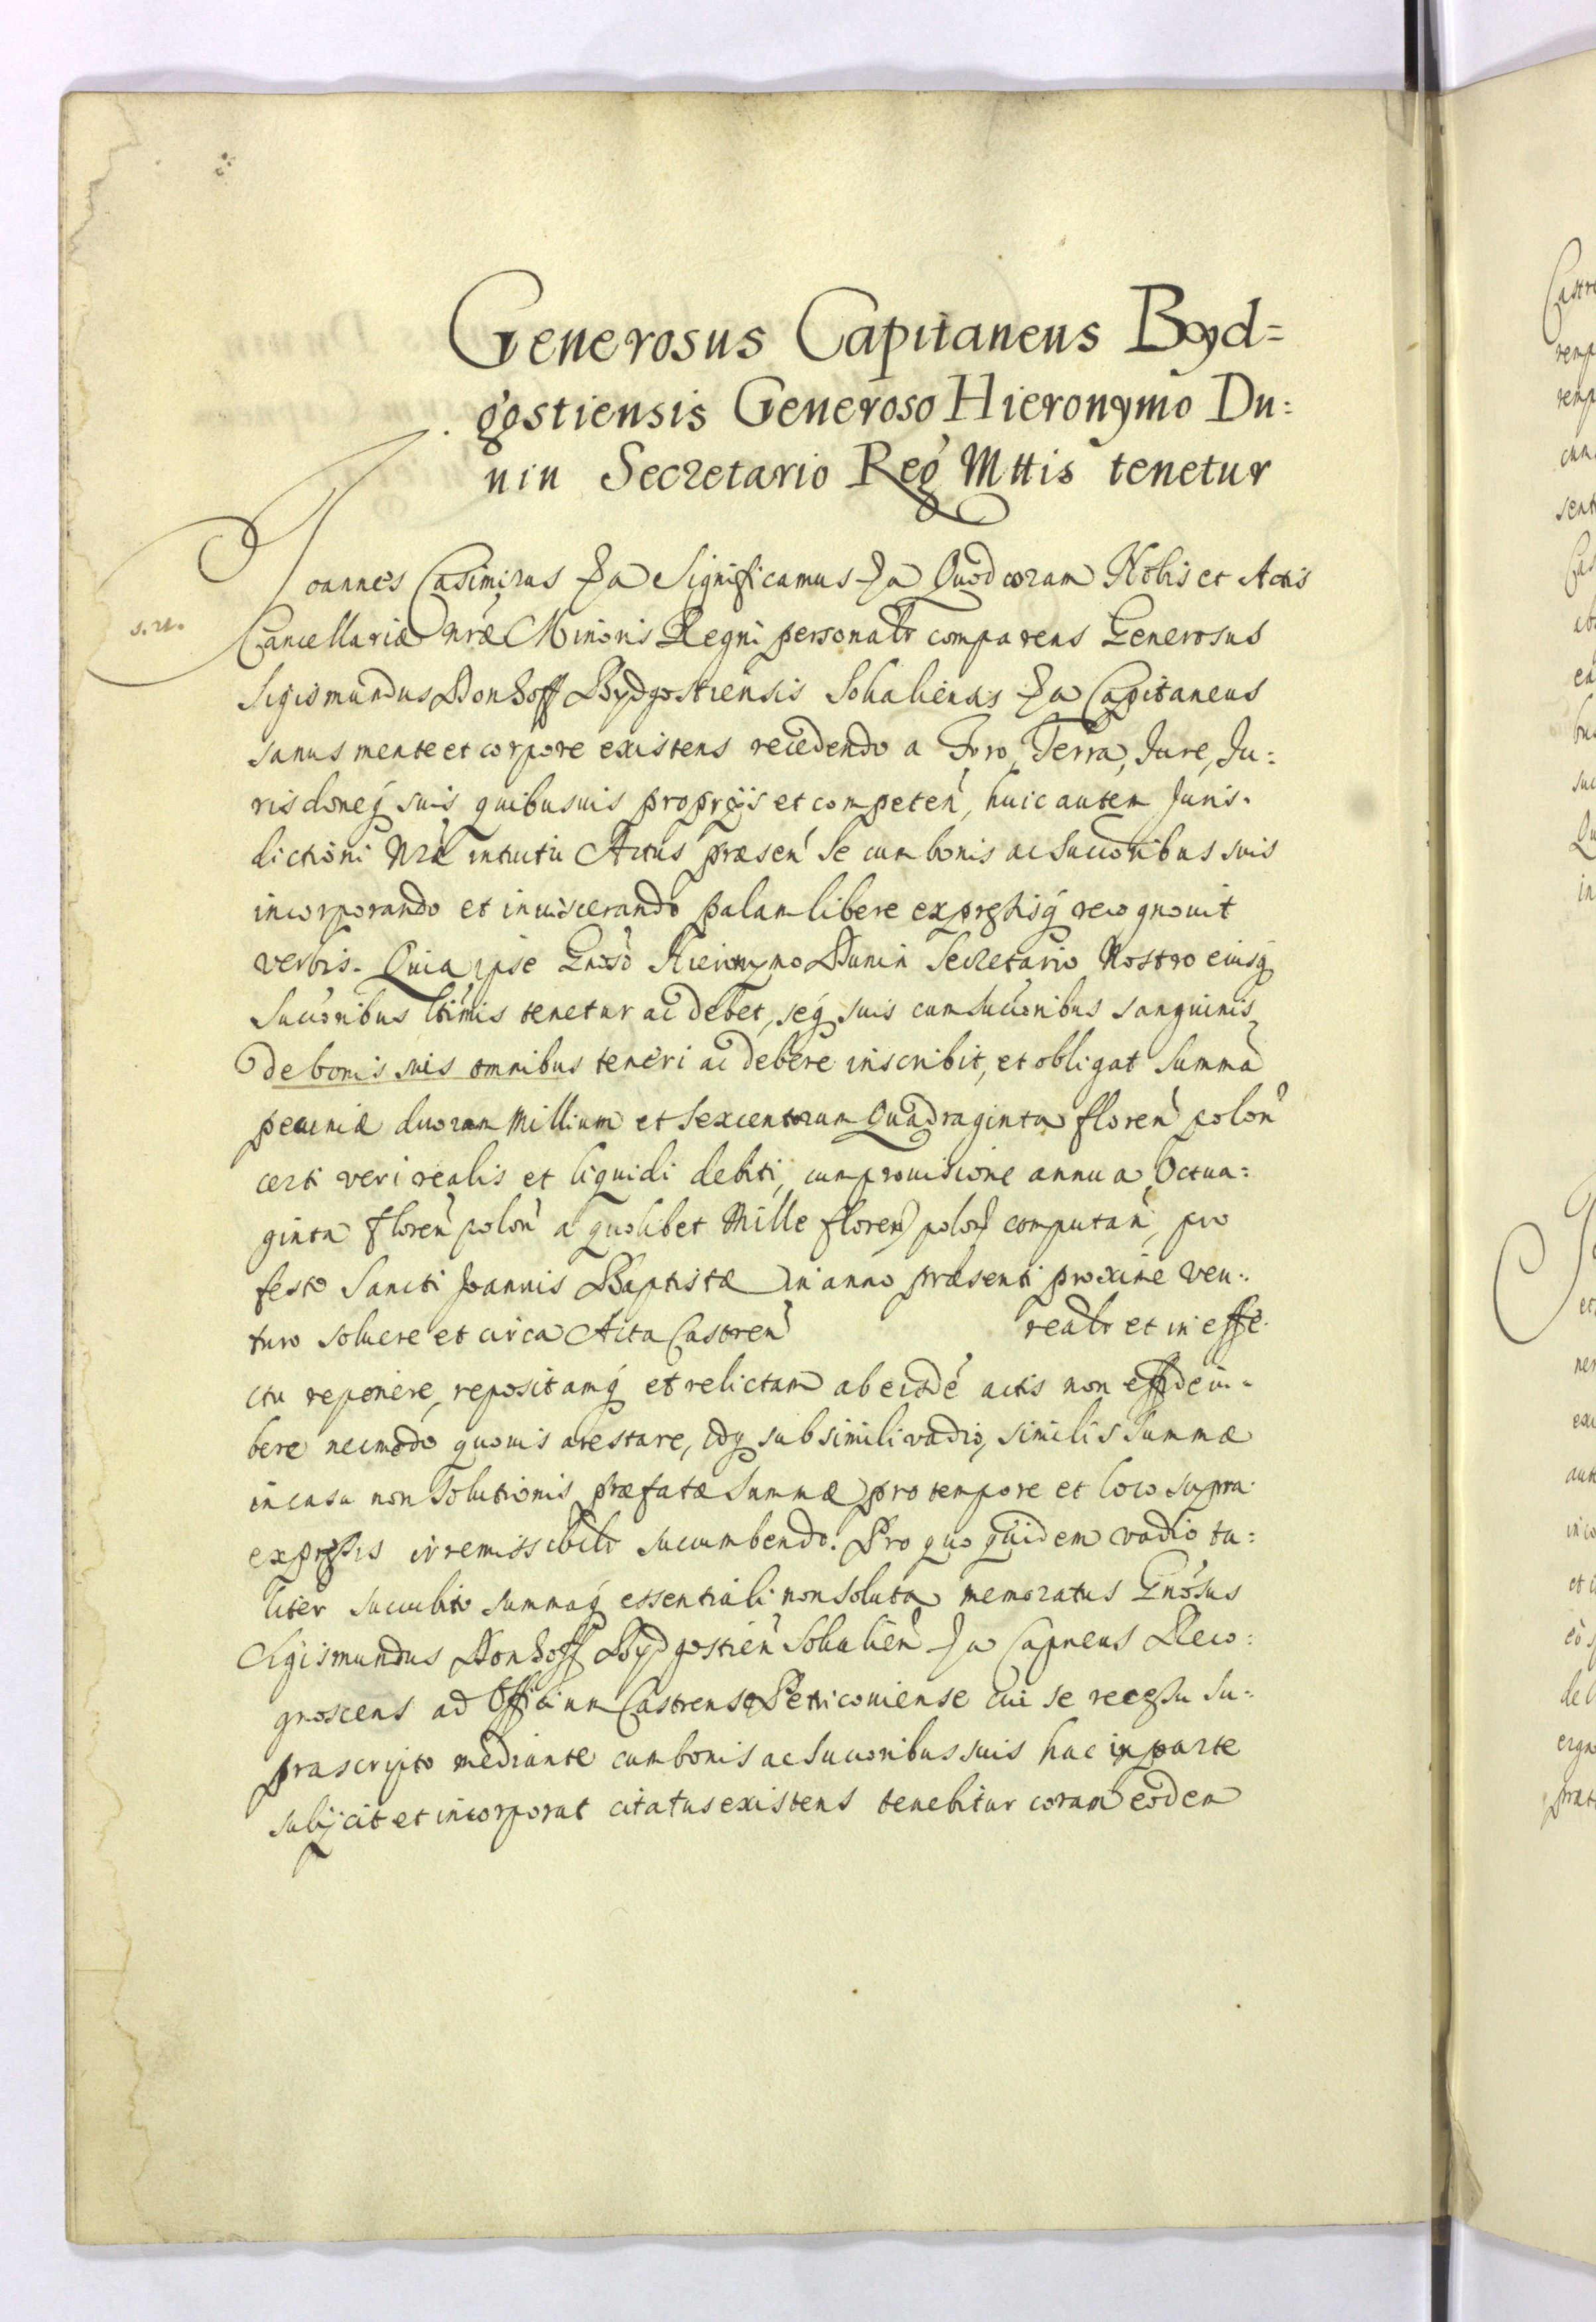 Generosus Capitaneus Byd=
gostiensis Generoso Hieronymo Du:
nin Secretario Reg Mttis tenetur
Joannes Casimirus &a Significamus &a Quod coram Nobis et Actis
s. n.
Cancellariæ nræ Minoris Regni personalr comparens Generosus
Sigismundus Donhoff Bydgostiensis Sokaliensis &a Capitaneus
sanus mente et corpore existens recedendo a Foro, Terra, Jure, Ju:
risdoneq suis quibusuis proprijs et competen, huic autem Juris.
dictioni Nræ intuitu Actus præsen Se cum bonis ac Succoribus suis
incorporando et inuiscerando palam libere expressisq recognouit
verbis. Quia ipse Gnoso Hieronymo Dunin Secretario Nostro eiusq
Succoribus ltimis tenetur ac debet, seq suis cum succoribus sanguinis
de bonis suis omnibus teneri ac debere inscribit, et obligat Summa
pecuniæ duorum Millium et Sexcentorum Quadraginta floren polon
certi veri realis et liquidi debiti, cum prouisione annua Octua=
ginta floren polon a quolibet Mille floren polon computan, pro
festo Sancti Joannis Baptistæ in anno præsenti proxime ven:
turo soluere et circa Acta Castren realr et in effe.
ctu reponere, repositamq et relictam ab eisde actis non
bere necmodo quouis arestare, idq sub simili vadio, similis Summæ
in casu non Solutionis præfatæ Summæ pro tempore et loco supra
expressis irremissibilr succumbendo. Pro quo quidem vadio ta:
liter succubito summaq essentiali non soluta memoratus Gnosus
Sigismundus Donhoff Bydgostien Sokalien &a Capneus Reco:
gnoscens ad Officium Castrense Petricouiense cui se recessu Su:
prascripto mediante cum bonis ac Succoribus suis hac in parte
subijcit et incorporat citatus existens tenebitur coram eodem